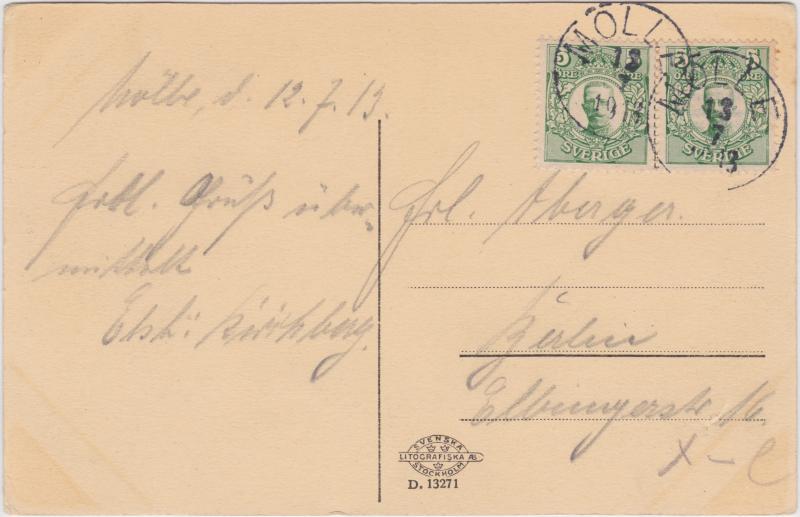 Mölle, d. 12.7.13.
Frdl. Gruß über-
mittelt
Kirchberg.
5 ÖRE
SVERIGE
5 ÖRE
SVERIGE
MÖLLE
13
7
1913
MÖLLE
13
7
13
Frl. Aberger.
Berlin
Elbingerstr. 16.
SVENSKA
LITOGRAFISKA AB.
STOCKHOLM
D. 13271